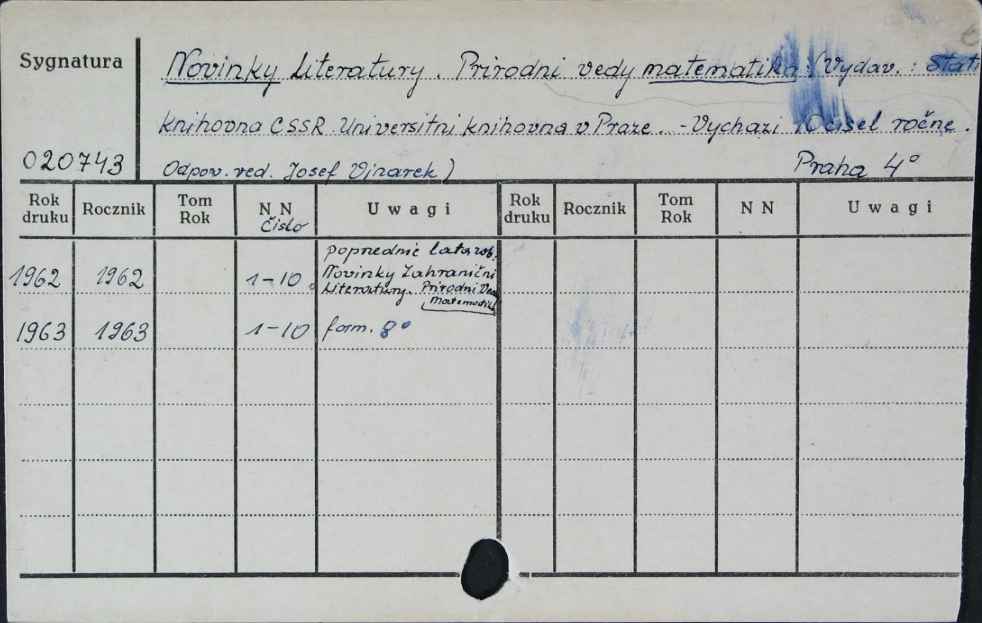 Sygnatura
Novinky Literatury. Prirodni vedy matematika (Vydav.: Stat
knihovna CSSR Universitni knihovna v Praze. - Vychazi 10 čisel ročne.
020743 Odpov. red. Josef Vinarek) Praha 4°
Rok druku Rocznik Tom Rok N N Čislo Uwagi Rok druku Rocznik Tom Rok N N Uwagi
poprzednie lata rob.
1962 1962 1-10. Novinky Zahranični
Literatury. Prirodni Ved
matematika
1963 1963 1-10 form. 8°